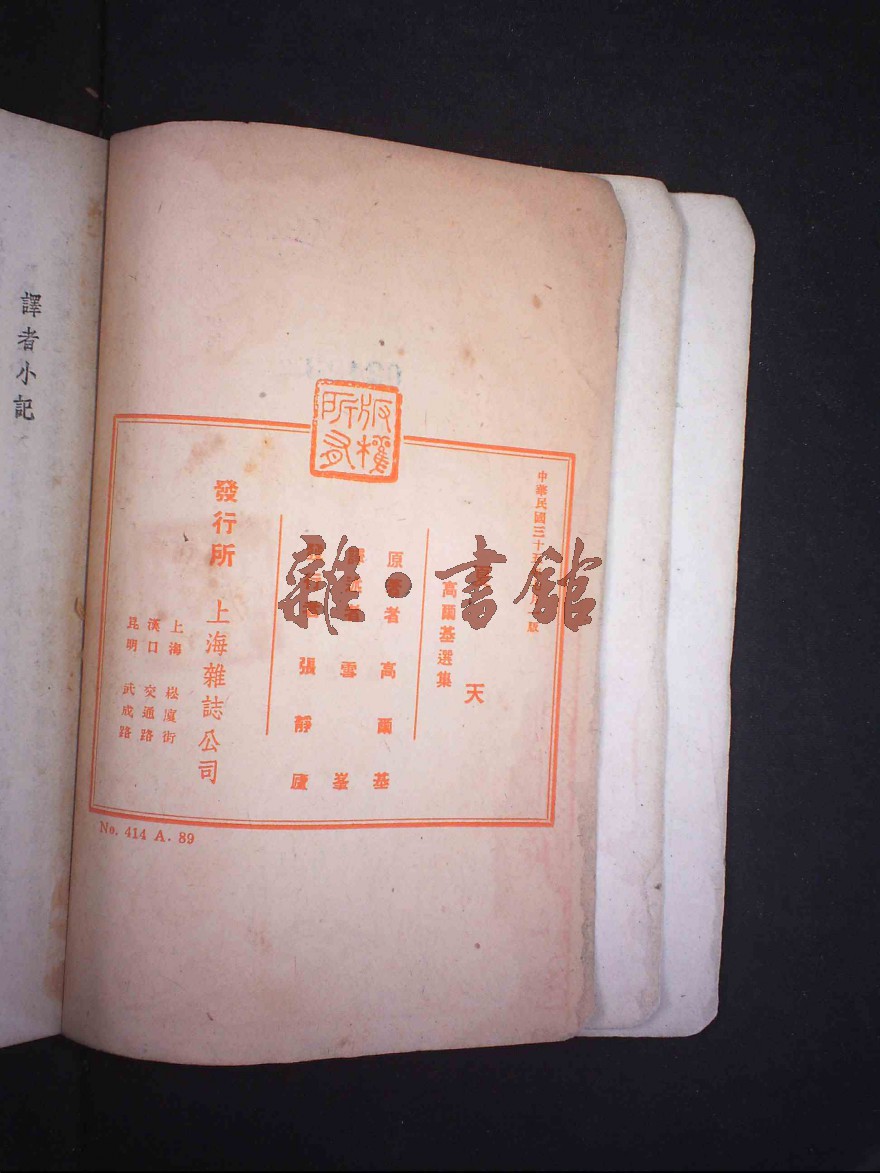 版權所有
中華民國三十五
版
夏天
高爾基選集
原著者 高爾基
雪峯
張靜廬
發行所 上海雜誌公司
上海 崧廈街
漢口 交通路
昆明 武成路
No. 414 A. 89
譯者小記
雜·書館